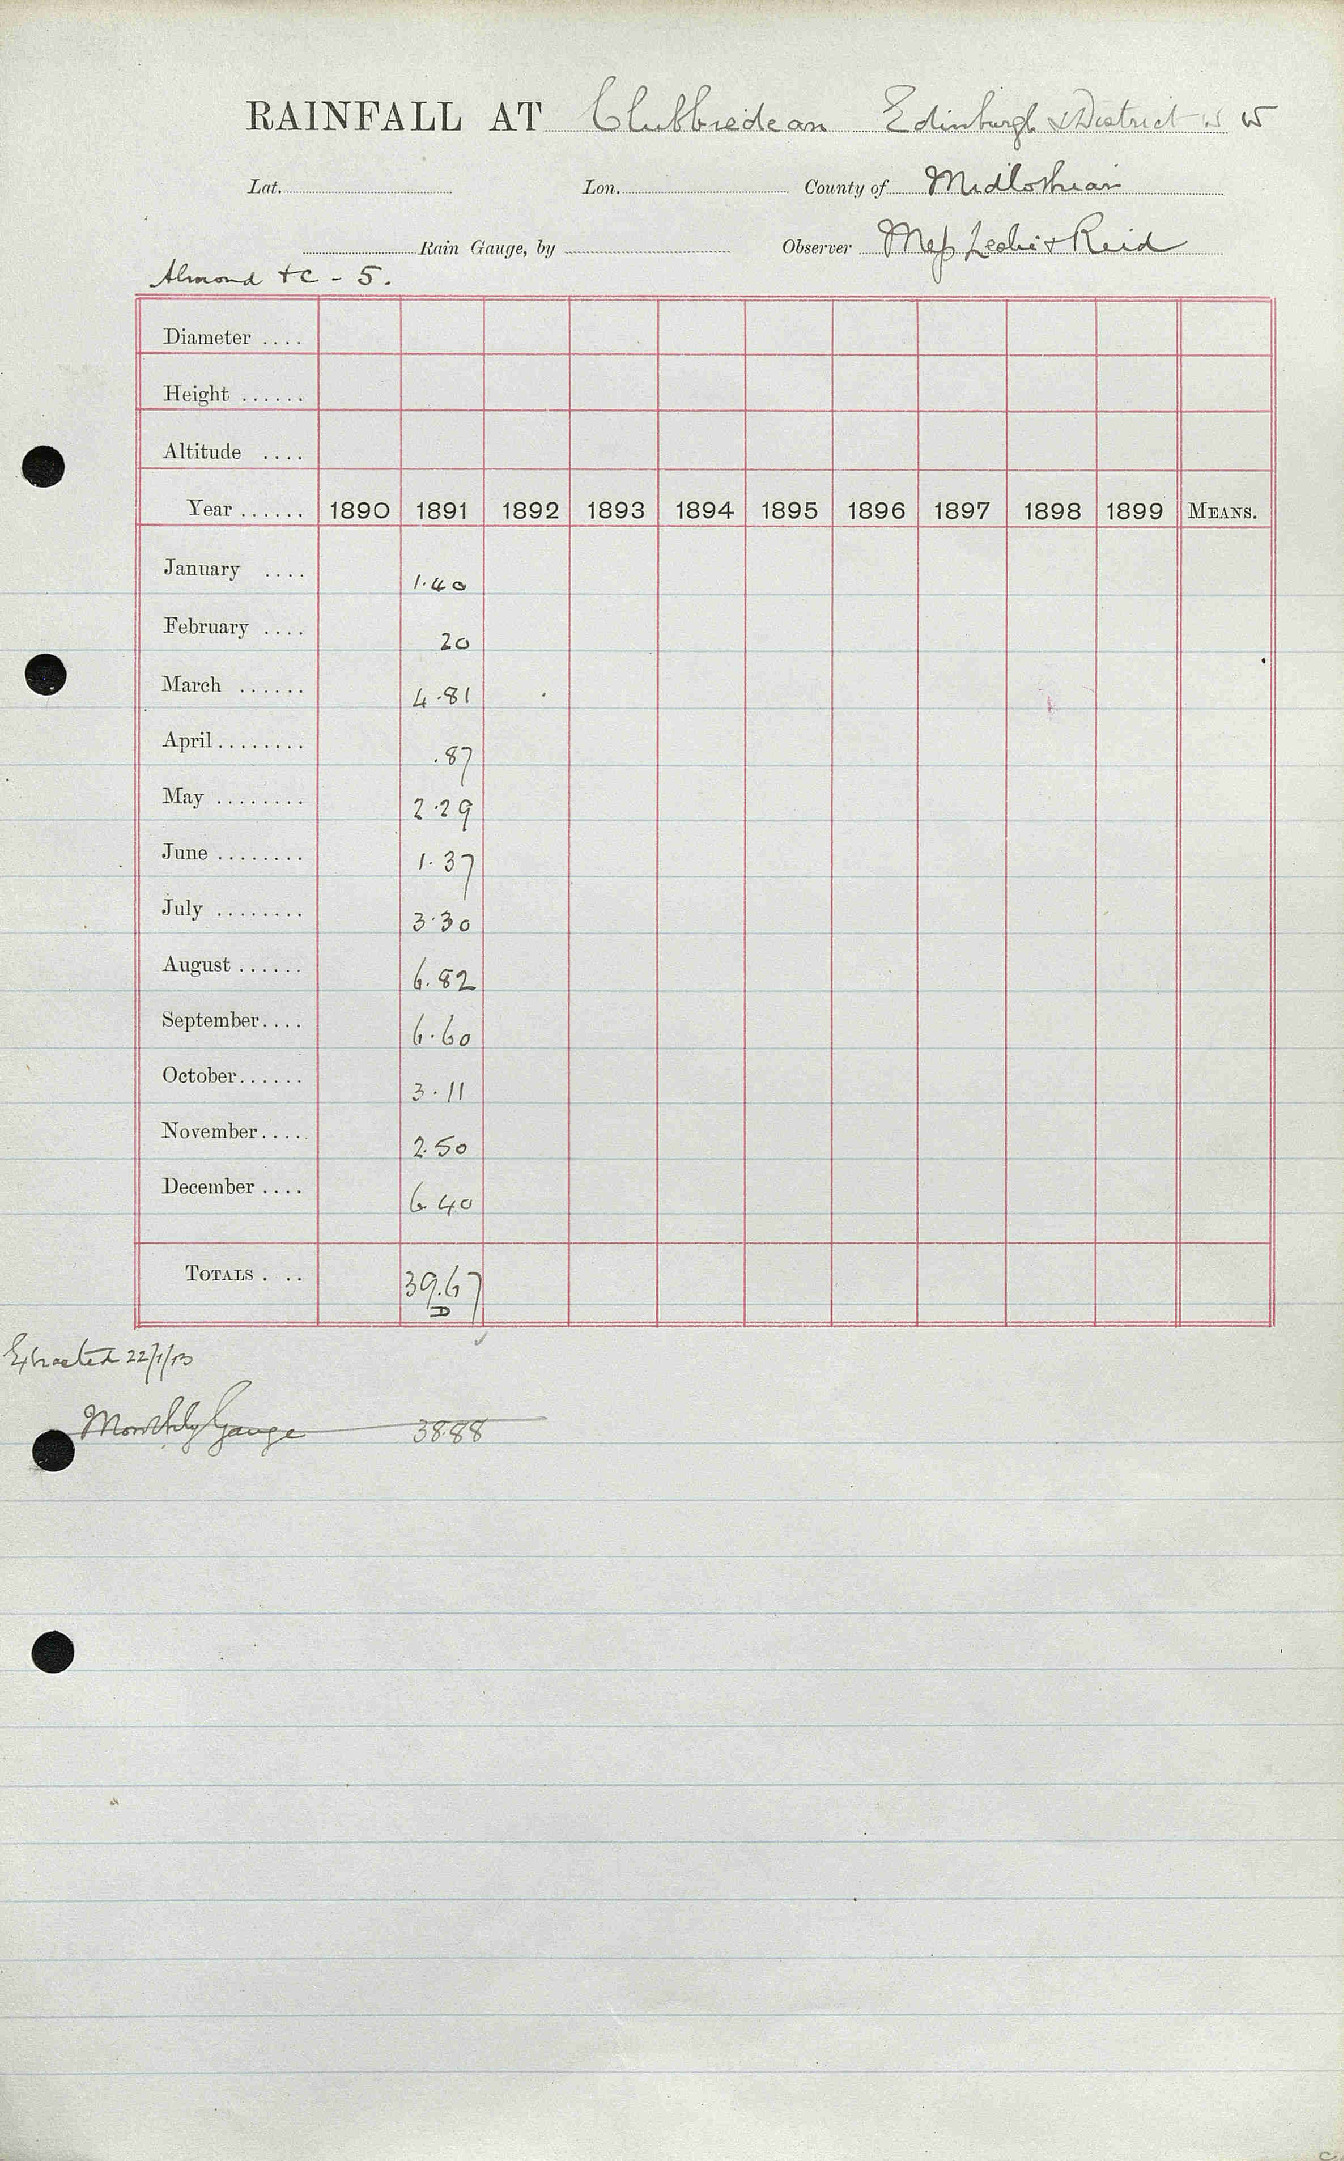 RAINFALL AT Clubbiedean Edinburgh & District W W
Lat. Lon. County of Midlothian
Rain Gauge, by Observer Mess Leslie & Reid
Almond &c - 5.
Diameter ....
Height ......
Altitude ....
Year ...... 1890 1891 1892 1893 1894 1895 1896 1897 1898 1899 MEANS.
January .... 1.40
February .... 20
March ...... 4.81
April ........ .87
May ........ 2.29
June ........ 1.37
July ........ 3.30
August ...... 6.82
September.... 6.60
October...... 3.11
November..... 2.50
December .... 6.40
TOTALS . .. 39.67
D
Extracted 22/1/13
Monthly Gauge 38.88